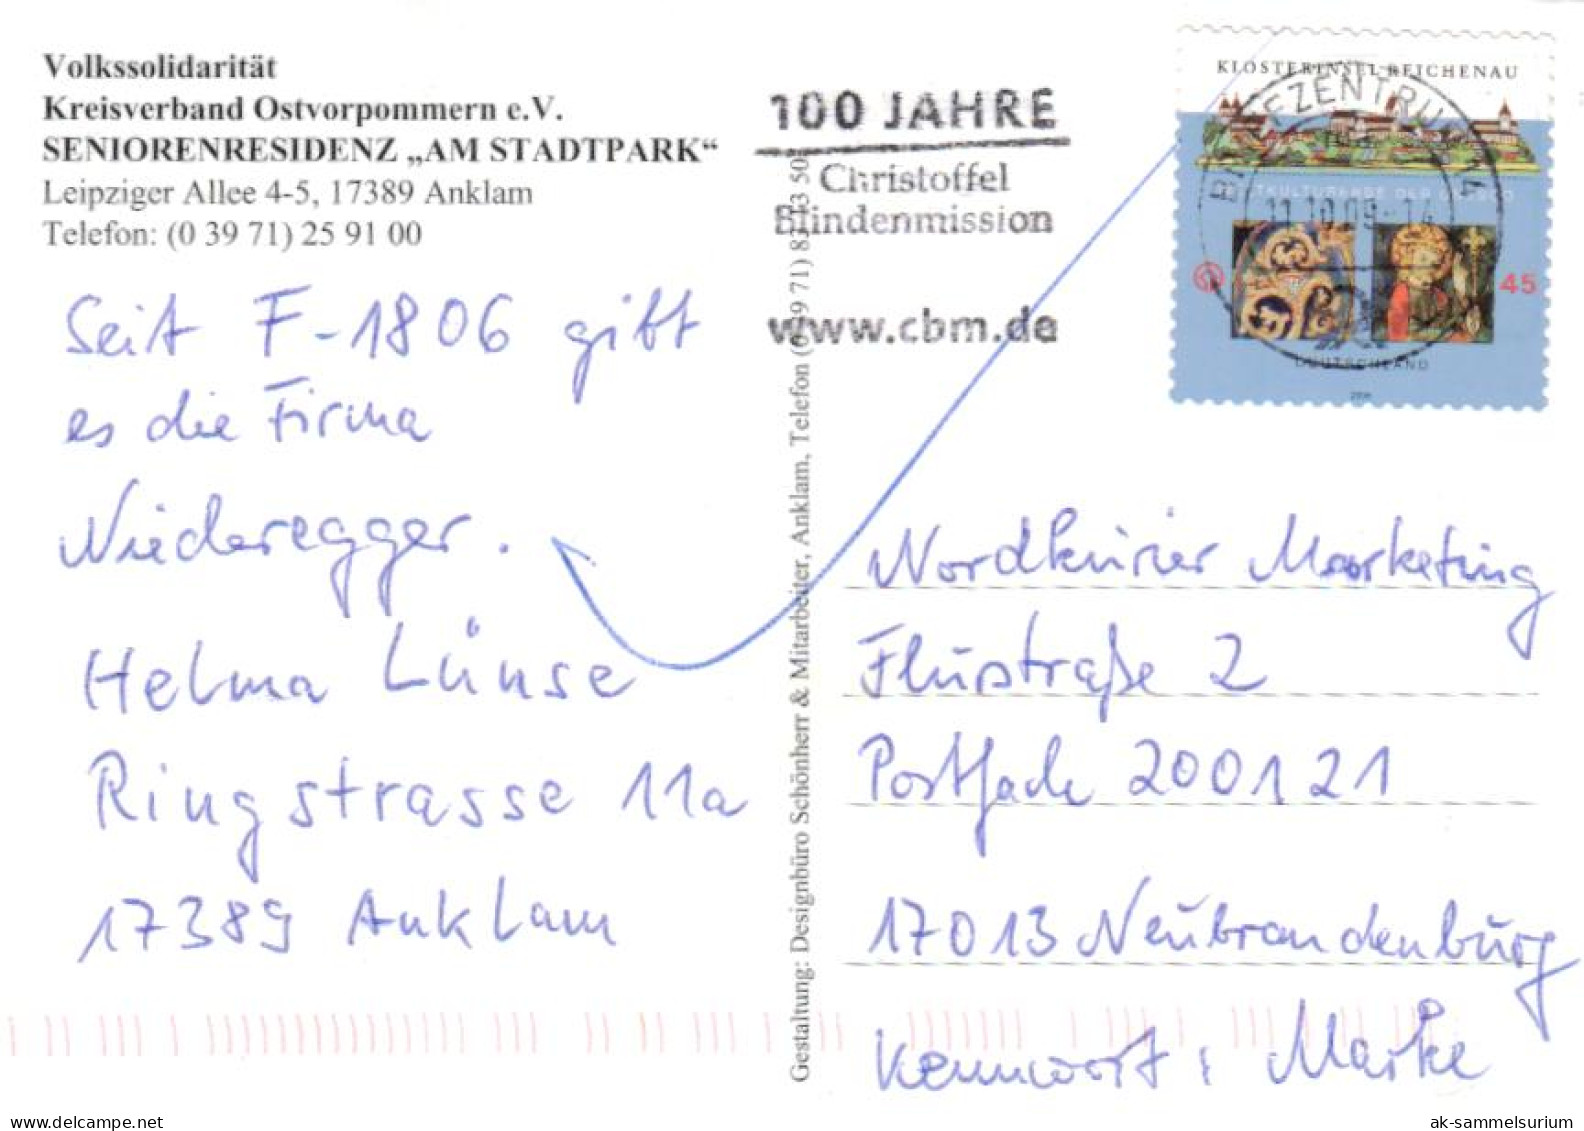 Volkssolidarität
Kreisverband Ostvorpommern e.V.
SENIORENRESIDENZ „AM STADTPARK“
Leipziger Allee 4-5, 17389 Anklam
Telefon: (0 39 71) 25 91 00
100 JAHRE
Christoffel
Blindenmission
www.cbm.de
KLOSTERINSEL REICHENAU
BRIEFZENTRUM
11.10.09-14
45
DEUTSCHLAND
Seit F-1806 gibt
es die Firma
Niederegger.
Helma Lünse
Ringstrasse 11a
17389 Anklam
Gestaltung: Designbüro Schönherr & Mitarbeiter, Anklam, Telefon
Nordkurier Marketing
Flurstraße 2
Postfach 200121
17013 Neubrandenburg
Kennwort: Marke
www.delcampe.net
ak-sammelsurium